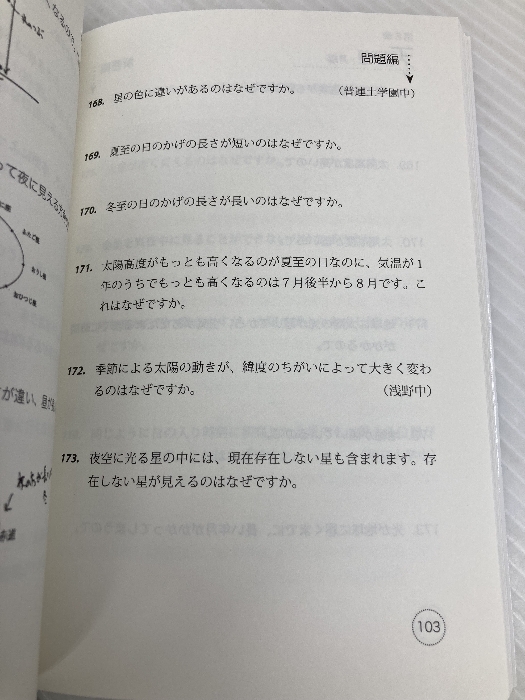 問題編
168. 星の色に違いがあるのはなぜですか。 （普連土学園中）
169. 夏至の日のかげの長さが短いのはなぜですか。
170. 冬至の日のかげの長さが長いのはなぜですか。
171. 太陽高度がもっとも高くなるのが夏至の日なのに、気温が1
年のうちでもっとも高くなるのは7月後半から8月です。こ
れはなぜですか。
172. 季節による太陽の動きが、緯度のちがいによって大きく変わ
るのはなぜですか。 （浅野中）
173. 夜空に光る星の中には、現在存在しない星も含まれます。存
在しない星が見えるのはなぜですか。
103
って夜に見える
が違い、星が